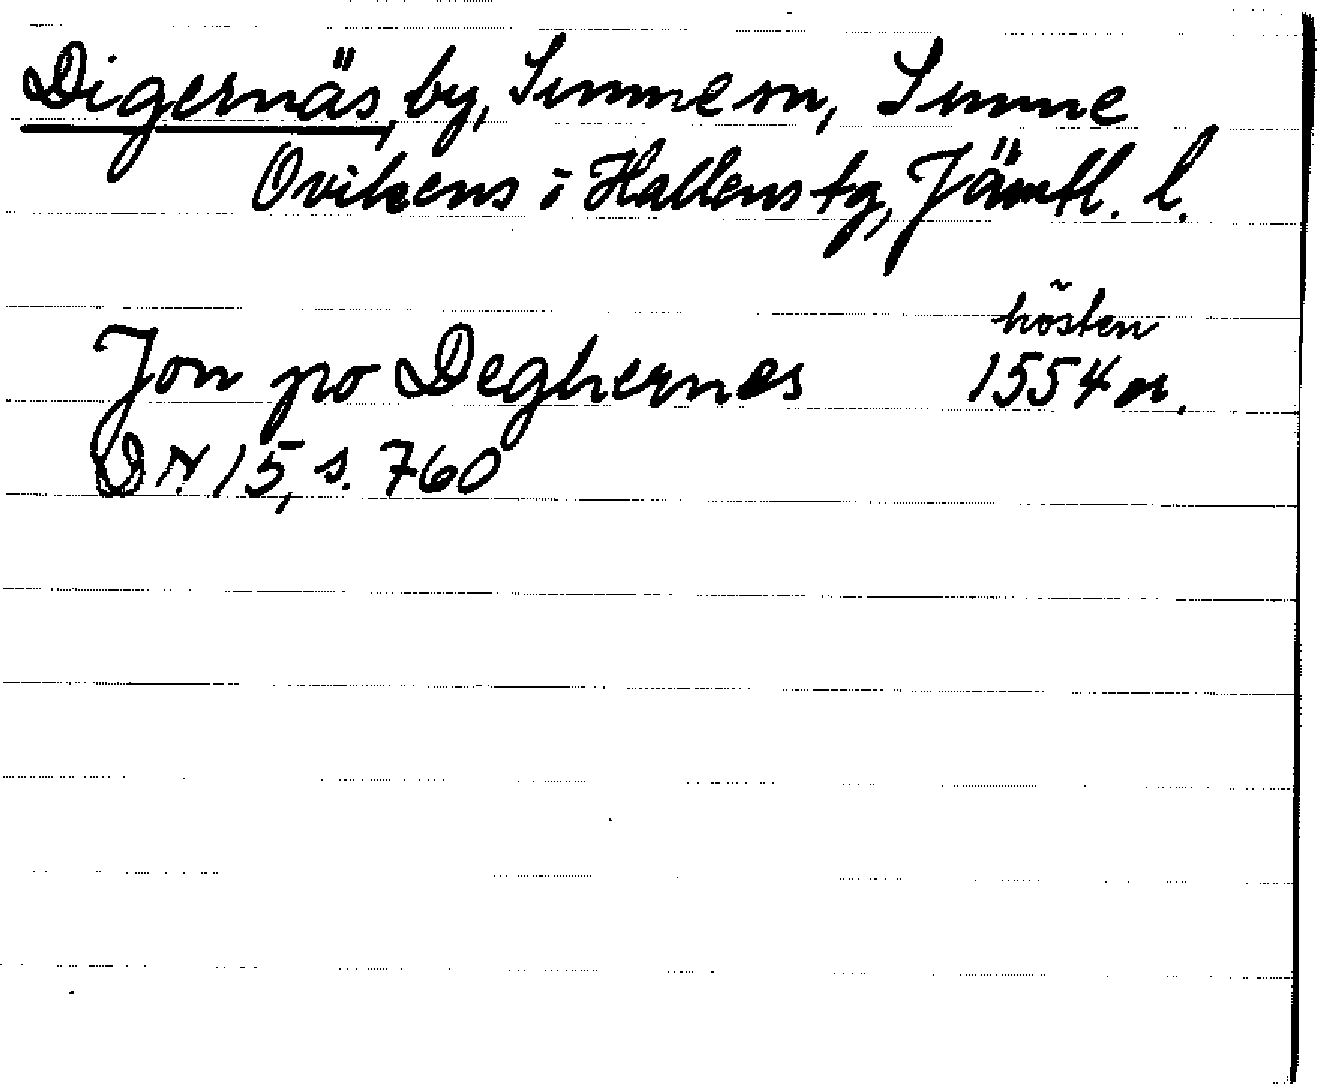 Digernäs, by, Sunne sn, Sunne
Ovikens i Hallens tg, Jämtl. l.
hösten
Jon po Deghernes 1554 or.
DN 15, s. 760